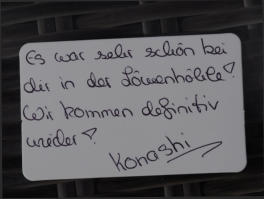 Es war sehr schön bei
dir in der Löwenhöhle!
Wir kommen definitiv
wieder!
Konashi